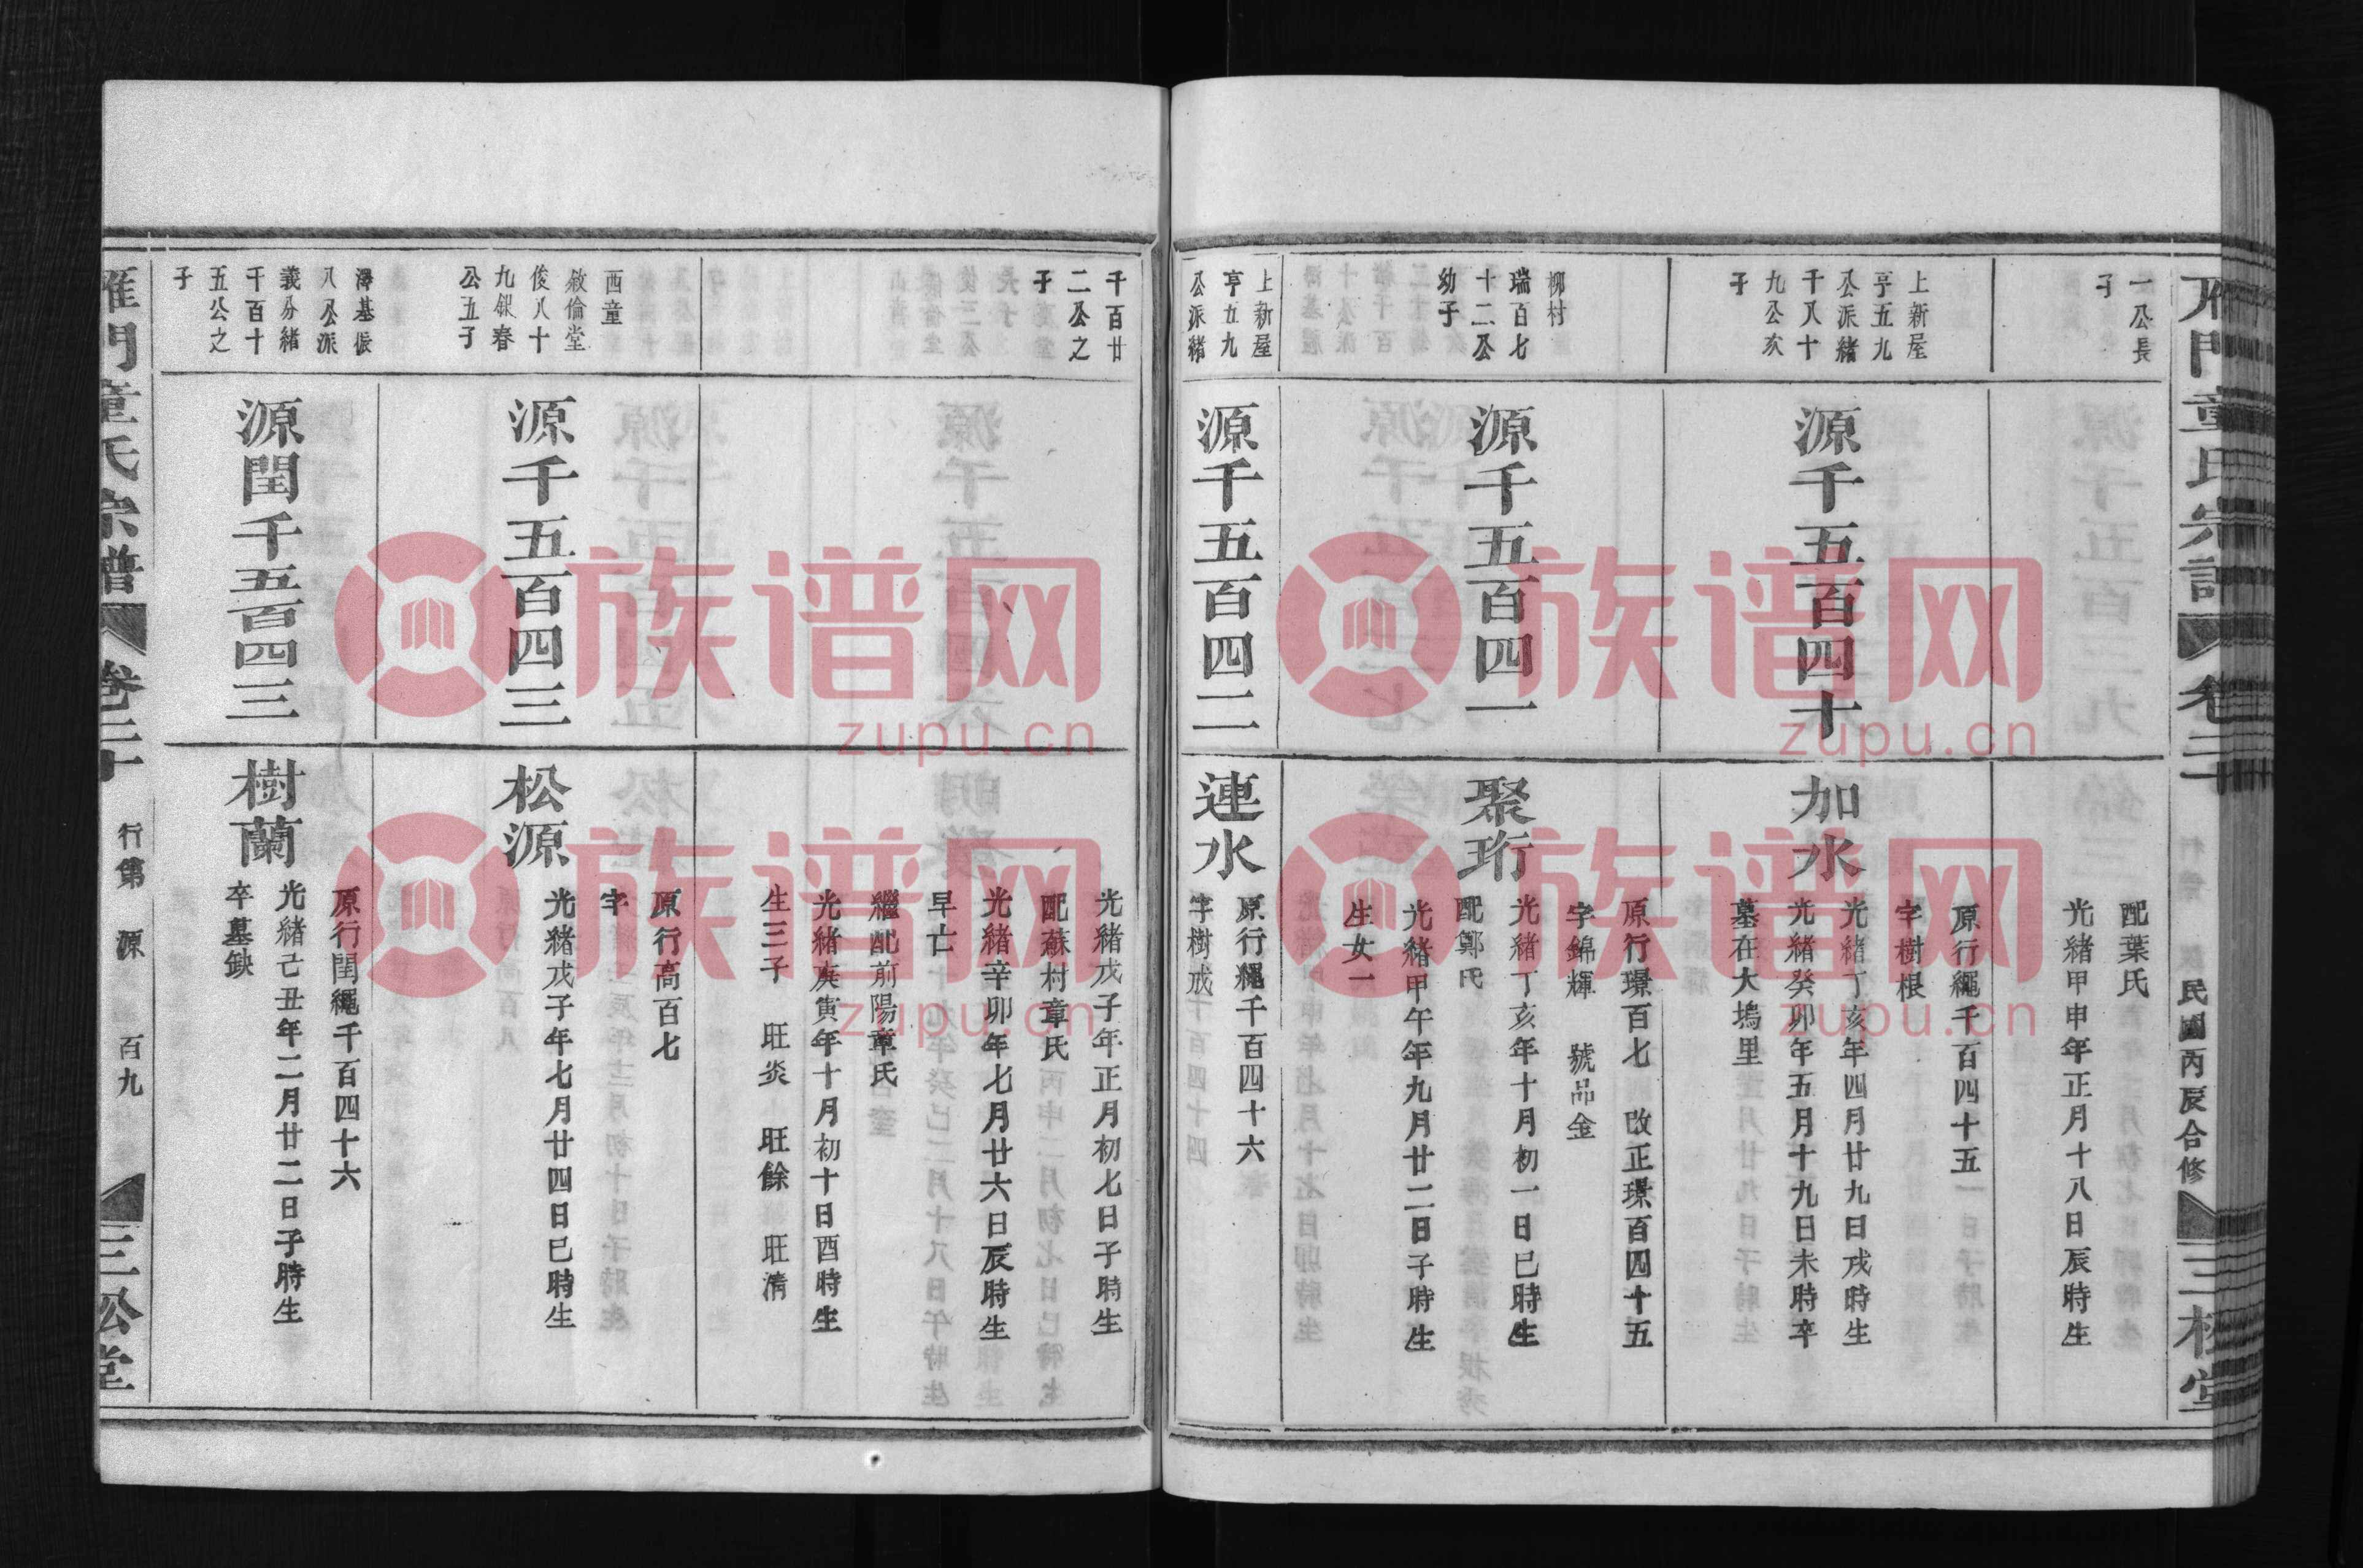 一公長
子
配葉氏
光緒甲申年正月十八日辰時生
上新屋
亨五九
公派緒
千八十
九公次
子
源千五百四十
加水
原行繩千百四十五
字樹根
光緒丁亥年四月廿九日戌時生
光緒癸卯年五月十九日未時卒
墓在大塢里
柳村
瑞百七
十二公
幼子
源千五百四一
聚珩
原行璟百七 改正璟百四十五
字錦輝 號品金
光緒丁亥年十月初一日巳時生
配鄭氏
光緒甲午年九月廿二日子時生
生女一
上新屋
亨五九
公派緒
源千五百四二
連水
原行繩千百四十六
字樹成
千百廿
二公之
子
光緒戊子年正月初七日子時生
配蘇村章氏
光緒辛卯年七月廿六日辰時生
早亡
繼配前陽章氏
光緒庚寅年十月初十日酉時生
生三子 旺炎 旺餘 旺清
西童
敘倫堂
俊八十
九銀春
公五子
源千五百四三
松源
原行高百七
字
光緒戊子年七月廿四日巳時生
澤基振
八公派
義分緒
千百十
五公之
子
源閏千五百四三
樹蘭
原行閏繩千百四十六
光緒己丑年二月廿二日子時生
卒墓缺
雁門童氏宗譜 卷二十 行第 源 百九 三松堂
民國丙辰合修
三松堂
族谱网
zupu.cn
族谱网
zupu.cn
族谱网
zupu.cn
族谱网
zupu.cn